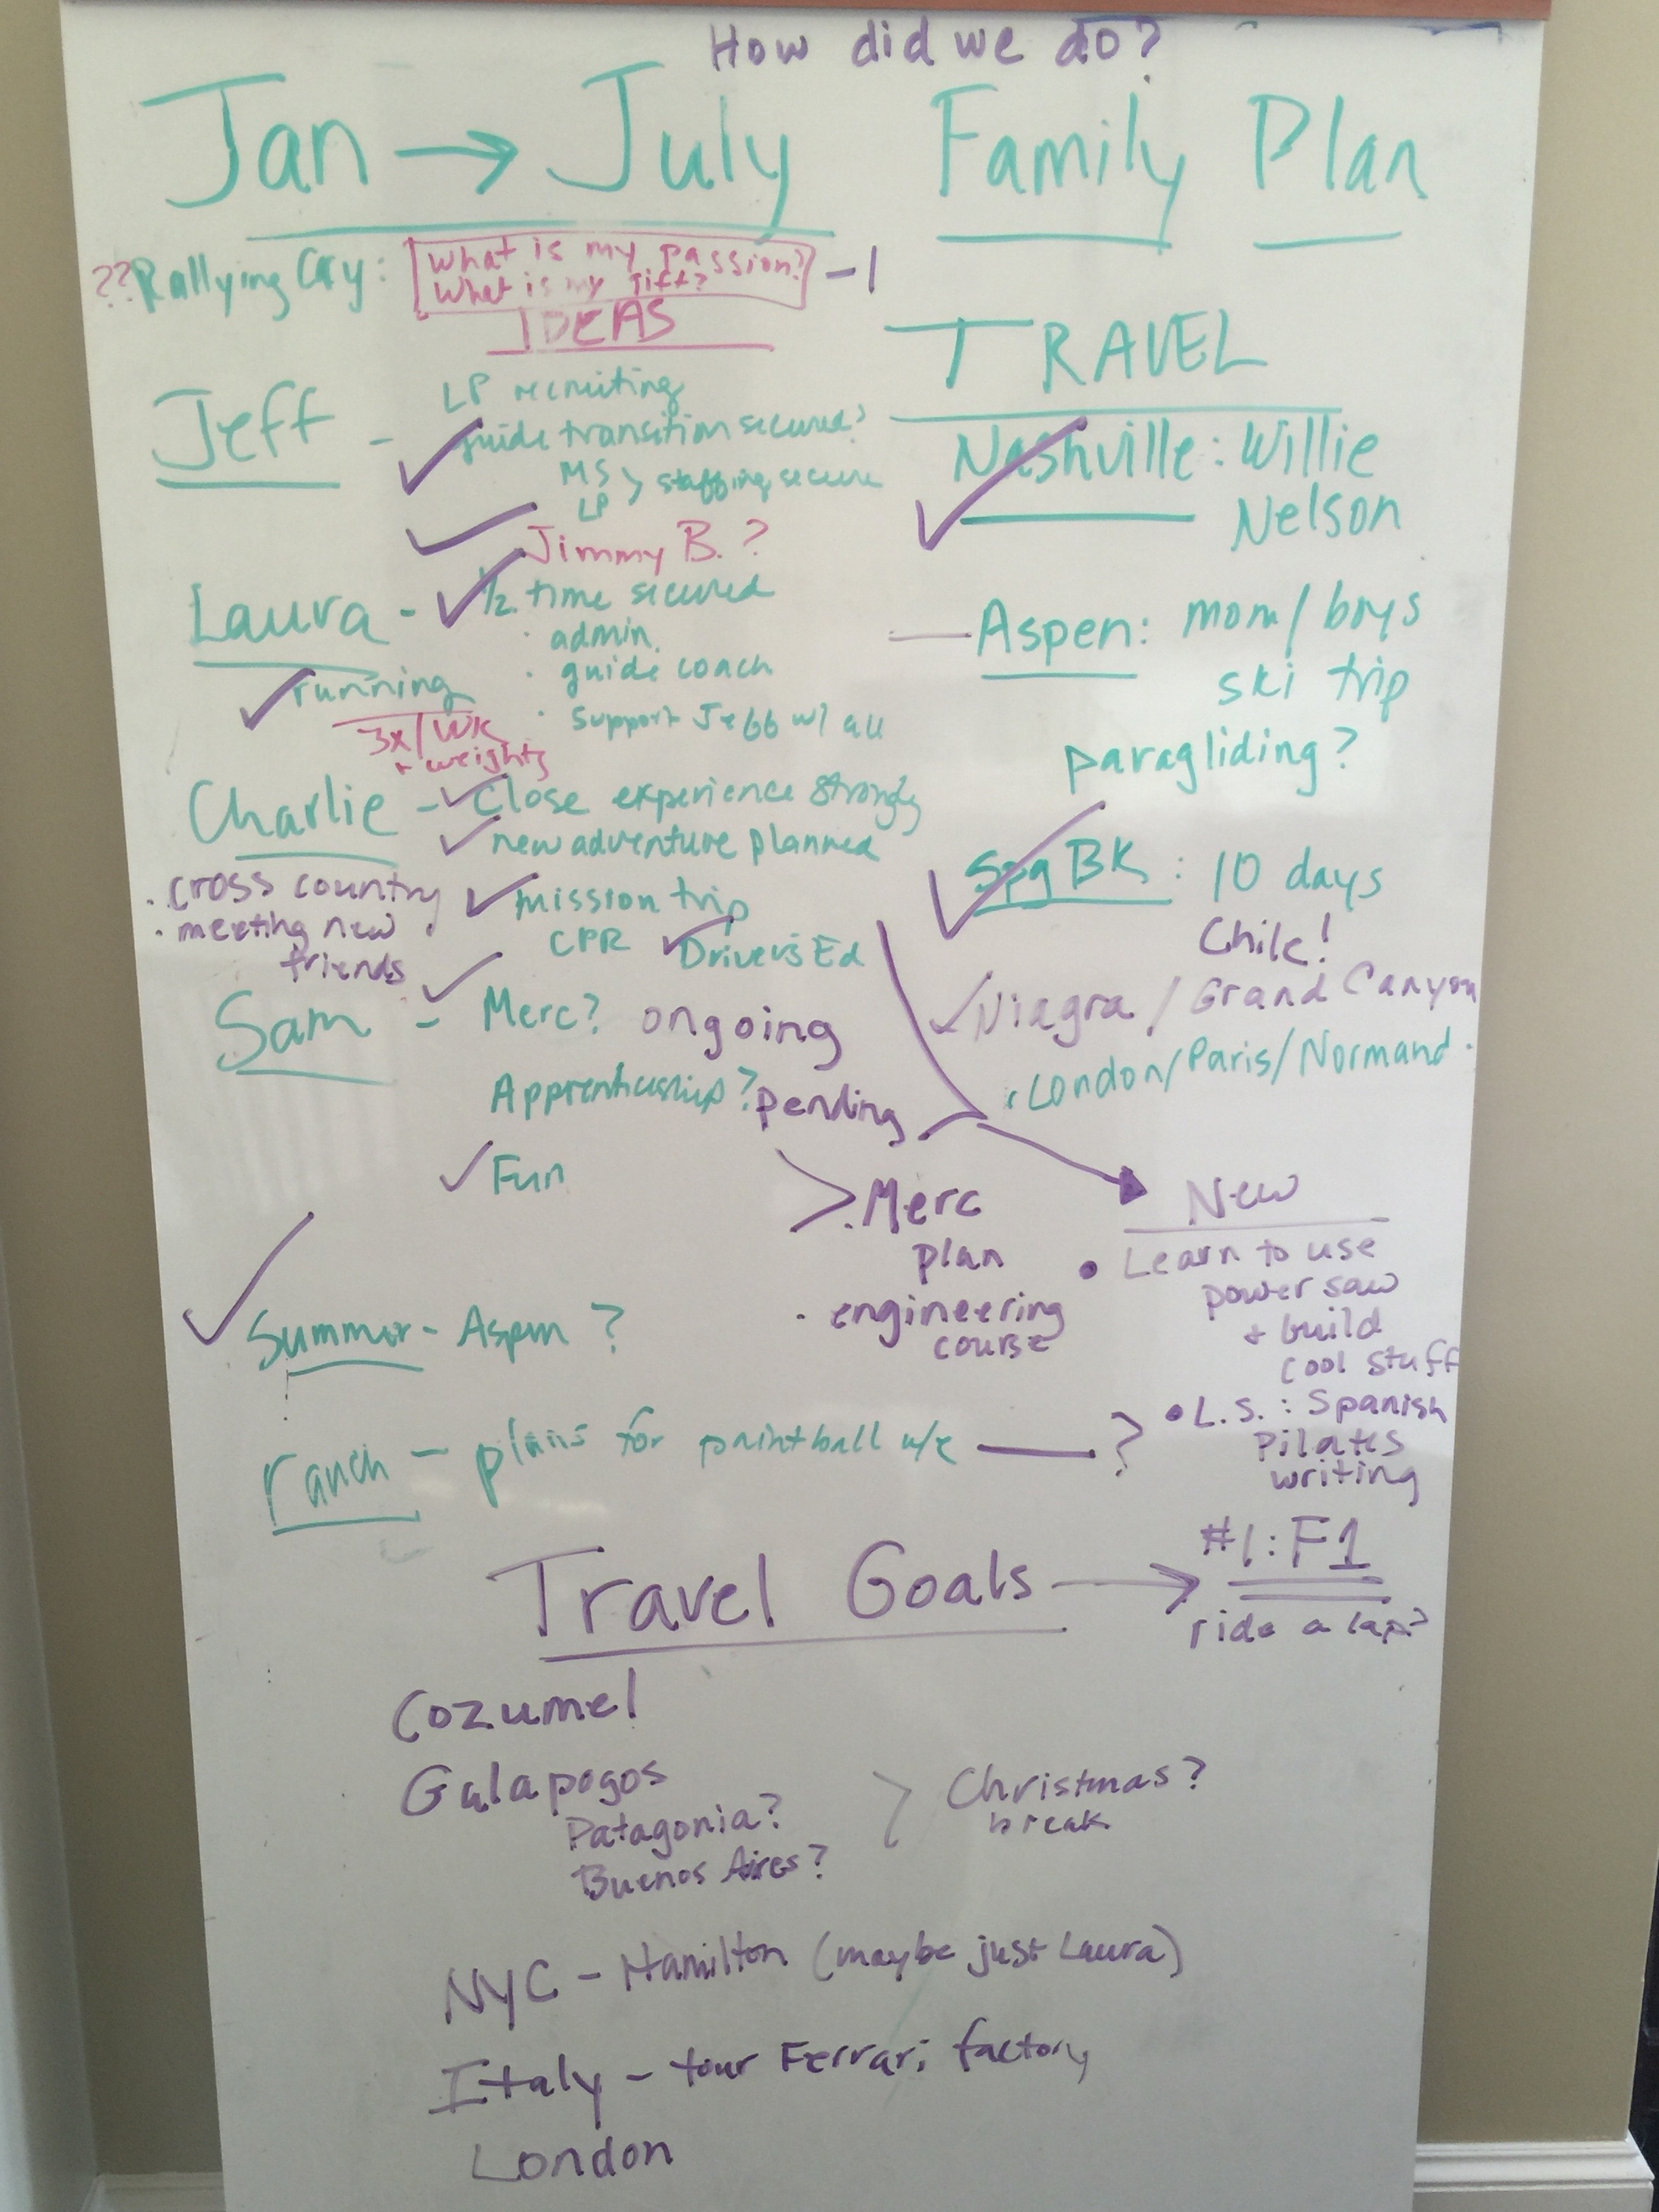 How did we do?
Jan → July Family Plan
??Rallying Cry: What is my passion? -1
What is my gift?
IDEAS
Jeff - LP recruiting
✓ guide transition secured?
MS
LP > staffing secure
✓ Jimmy B. ?
Laura - ✓ 1/2 time secured
· admin
· guide coach
· support Jeff w/ all
✓ running
3x/WK
+ weights
Charlie - ✓ Close experience strongly
✓ new adventure planned
✓ mission trip
CPR ✓ Driver's Ed
· cross country
· meeting new
friends
Sam - ✓ Merc? ongoing
Apprenticeship? pending
✓ Fun
> · Merc
plan
· engineering
course
✓ Summer - Aspen ?
ranch - plans for paintball w/e — ?
TRAVEL
✓ Nashville: Willie
Nelson
— Aspen: mom/boys
ski trip
paragliding?
✓ Spg BK: 10 days
Chile!
✓ Niagra / Grand Canyon
· London/Paris/Normand ·
New
• Learn to use
power saw
+ build
cool stuff
• L.S. : Spanish
Pilates
writing
Travel Goals → #1: F1
ride a lap?
Cozumel
Galapogos
Patagonia?
Buenos Aires?
> Christmas?
break
NYC - Hamilton (maybe just Laura)
Italy - tour Ferrari factory
London